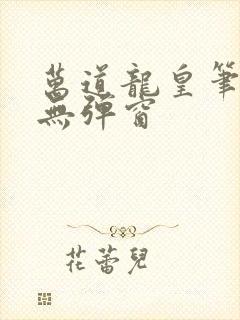 萬道龍皇筆
無彈窗
花蕾兒